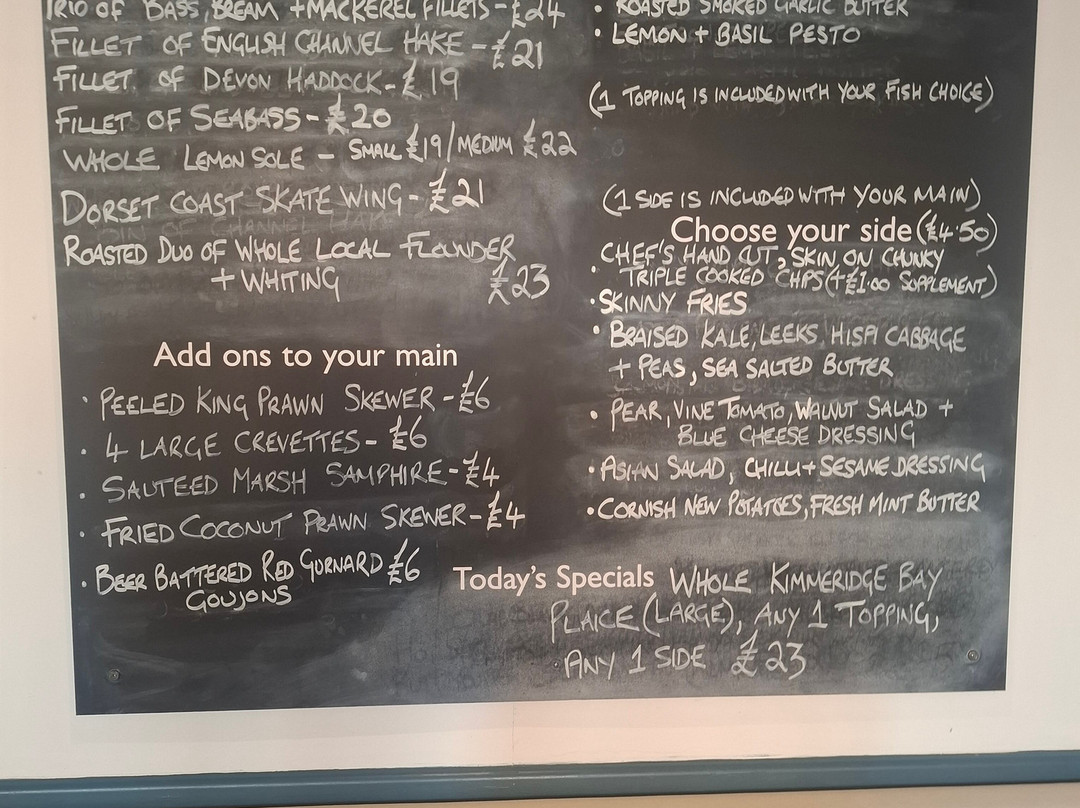 TRIO OF BASS, BREAM + MACKEREL FILLETS - £24
FILLET OF ENGLISH CHANNEL HAKE - £21
FILLET OF DEVON HADDOCK - £19
FILLET OF SEABASS - £20
WHOLE LEMON SOLE - SMALL £19/MEDIUM £22
DORSET COAST SKATE WING - £21
ROASTED DUO OF WHOLE LOCAL FLOUNDER
+ WHITING £23
Add ons to your main
• PEELED KING PRAWN SKEWER - £6
• 4 LARGE CREVETTES - £6
• SAUTEED MARSH SAMPHIRE - £4
• FRIED COCONUT PRAWN SKEWER - £4
• BEER BATTERED RED GURNARD £6
GOUJONS
• ROASTED SMOKED GARLIC BUTTER
• LEMON + BASIL PESTO
(1 TOPPING IS INCLUDED WITH YOUR FISH CHOICE)
(1 SIDE IS INCLUDED WITH YOUR MAIN)
Choose your side (£4.50)
• CHEF'S HAND CUT, SKIN ON CHUNKY
TRIPLE COOKED CHIPS (+£1.00 SUPPLEMENT)
• SKINNY FRIES
• BRAISED KALE, LEEKS, HISPI CABBAGE
+ PEAS, SEA SALTED BUTTER
• PEAR, VINE TOMATO, WALNUT SALAD +
BLUE CHEESE DRESSING
• ASIAN SALAD, CHILLI + SESAME DRESSING
• CORNISH NEW POTATOES, FRESH MINT BUTTER
Today's Specials WHOLE KIMMERIDGE BAY
PLAICE (LARGE), ANY 1 TOPPING,
ANY 1 SIDE £23